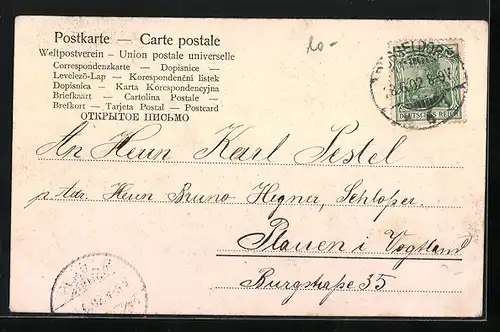 Postkarte — Carte postale
Weltpostverein – Union postale universelle
Correspondenzkarte — Dopisnice —
Levelező-Lap — Korespondenční listek
Dopisnica — Karta Korespondencyjna
Briefkaart — Cartolina Postale —
Brefkort — Tarjeta Postal — Postcard
ОТКРЫТОЕ ПИСЬМО
DEUTSCHES REICH
An Herrn Karl Pestel
p. Adr. Herrn Bruno Hegner, Schlosser.
Plauen i Vogtland
Burgstraße 35